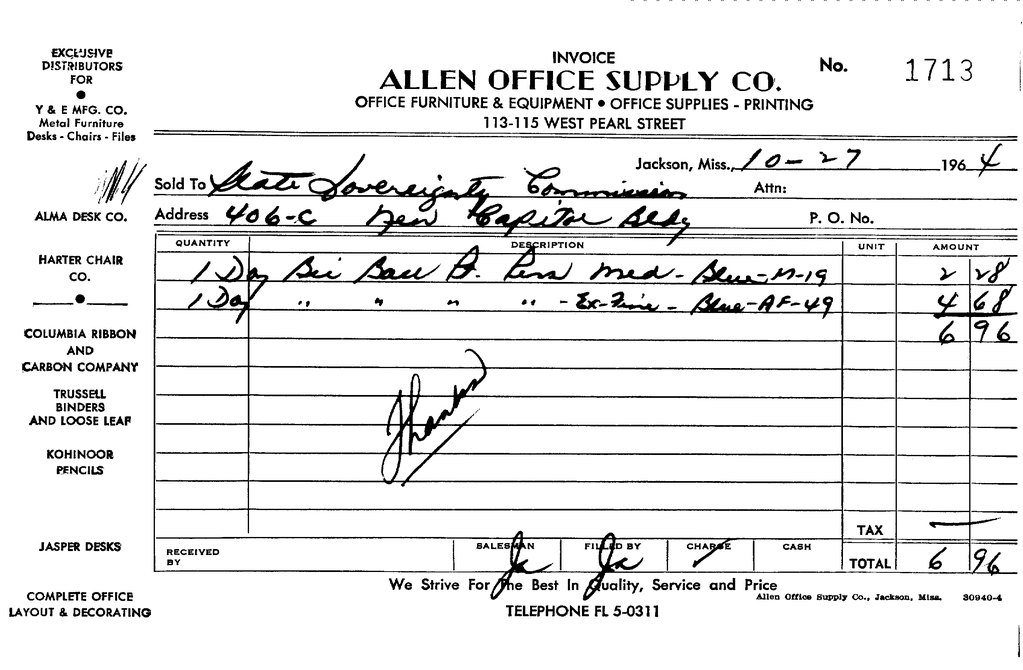 EXCLUSIVE
DISTRIBUTORS
FOR
Y & E MFG. CO.
Metal Furniture
Desks - Chairs - Files
ALMA DESK CO.
HARTER CHAIR
CO.
COLUMBIA RIBBON
AND
CARBON COMPANY
TRUSSELL
BINDERS
AND LOOSE LEAF
KOHINOOR
PENCILS
JASPER DESKS
COMPLETE OFFICE
LAYOUT & DECORATING
INVOICE
ALLEN OFFICE SUPPLY CO.
No. 1713
OFFICE FURNITURE & EQUIPMENT • OFFICE SUPPLIES - PRINTING
113-115 WEST PEARL STREET
Jackson, Miss., 10-27 1964
Sold To State Sovereignty Commission Attn:
Address 406-C New Capitol Bldg P. O. No.
QUANTITY DESCRIPTION UNIT AMOUNT
1 Doz Bic Ball Pt. Pens Med - Blue-M-19 2 28
1 Doz " " " " - Ex-Fine - Blue-AF-49 4 68
6 96
Thanks
TAX —
RECEIVED BY SALESMAN FILLED BY CHARGE ✓ CASH TOTAL 6 96
We Strive For The Best In Quality, Service and Price
Allen Office Supply Co., Jackson, Miss. 30940-4
TELEPHONE FL 5-0311